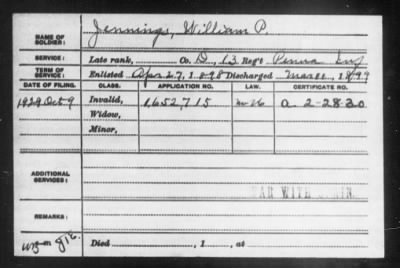 NAME OF SOLDIER: Jennings, William P.
SERVICE: Late rank, Co. D, 13 Reg't Penna Inf
TERM OF SERVICE: Enlisted Apr 27, 1898 Discharged Mar 11, 1899
DATE OF FILING. CLASS. APPLICATION NO. LAW. CERTIFICATE NO.
1929 Oct 9 Invalid, 1,652,715 a 2-28-30
Widow,
Minor,
ADDITIONAL SERVICES:
WAR WITH SPAIN.
REMARKS:
Died , 1 , at